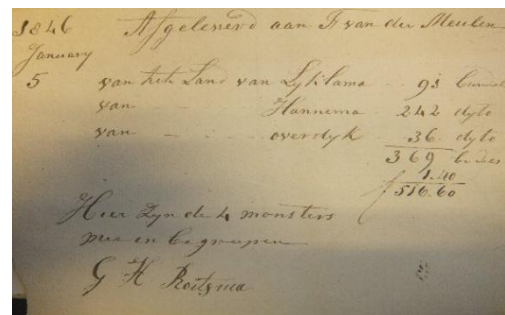 1846 Afgeleverd aan F van der Meulen
January
5 van het Land van Sytilama 91
van Hannema 242 dyto
van overdyk 36 dyto
369
1.40
f 516.60
Hier Zyn de 4 monsters
mee in begreepen
G H Roitsma